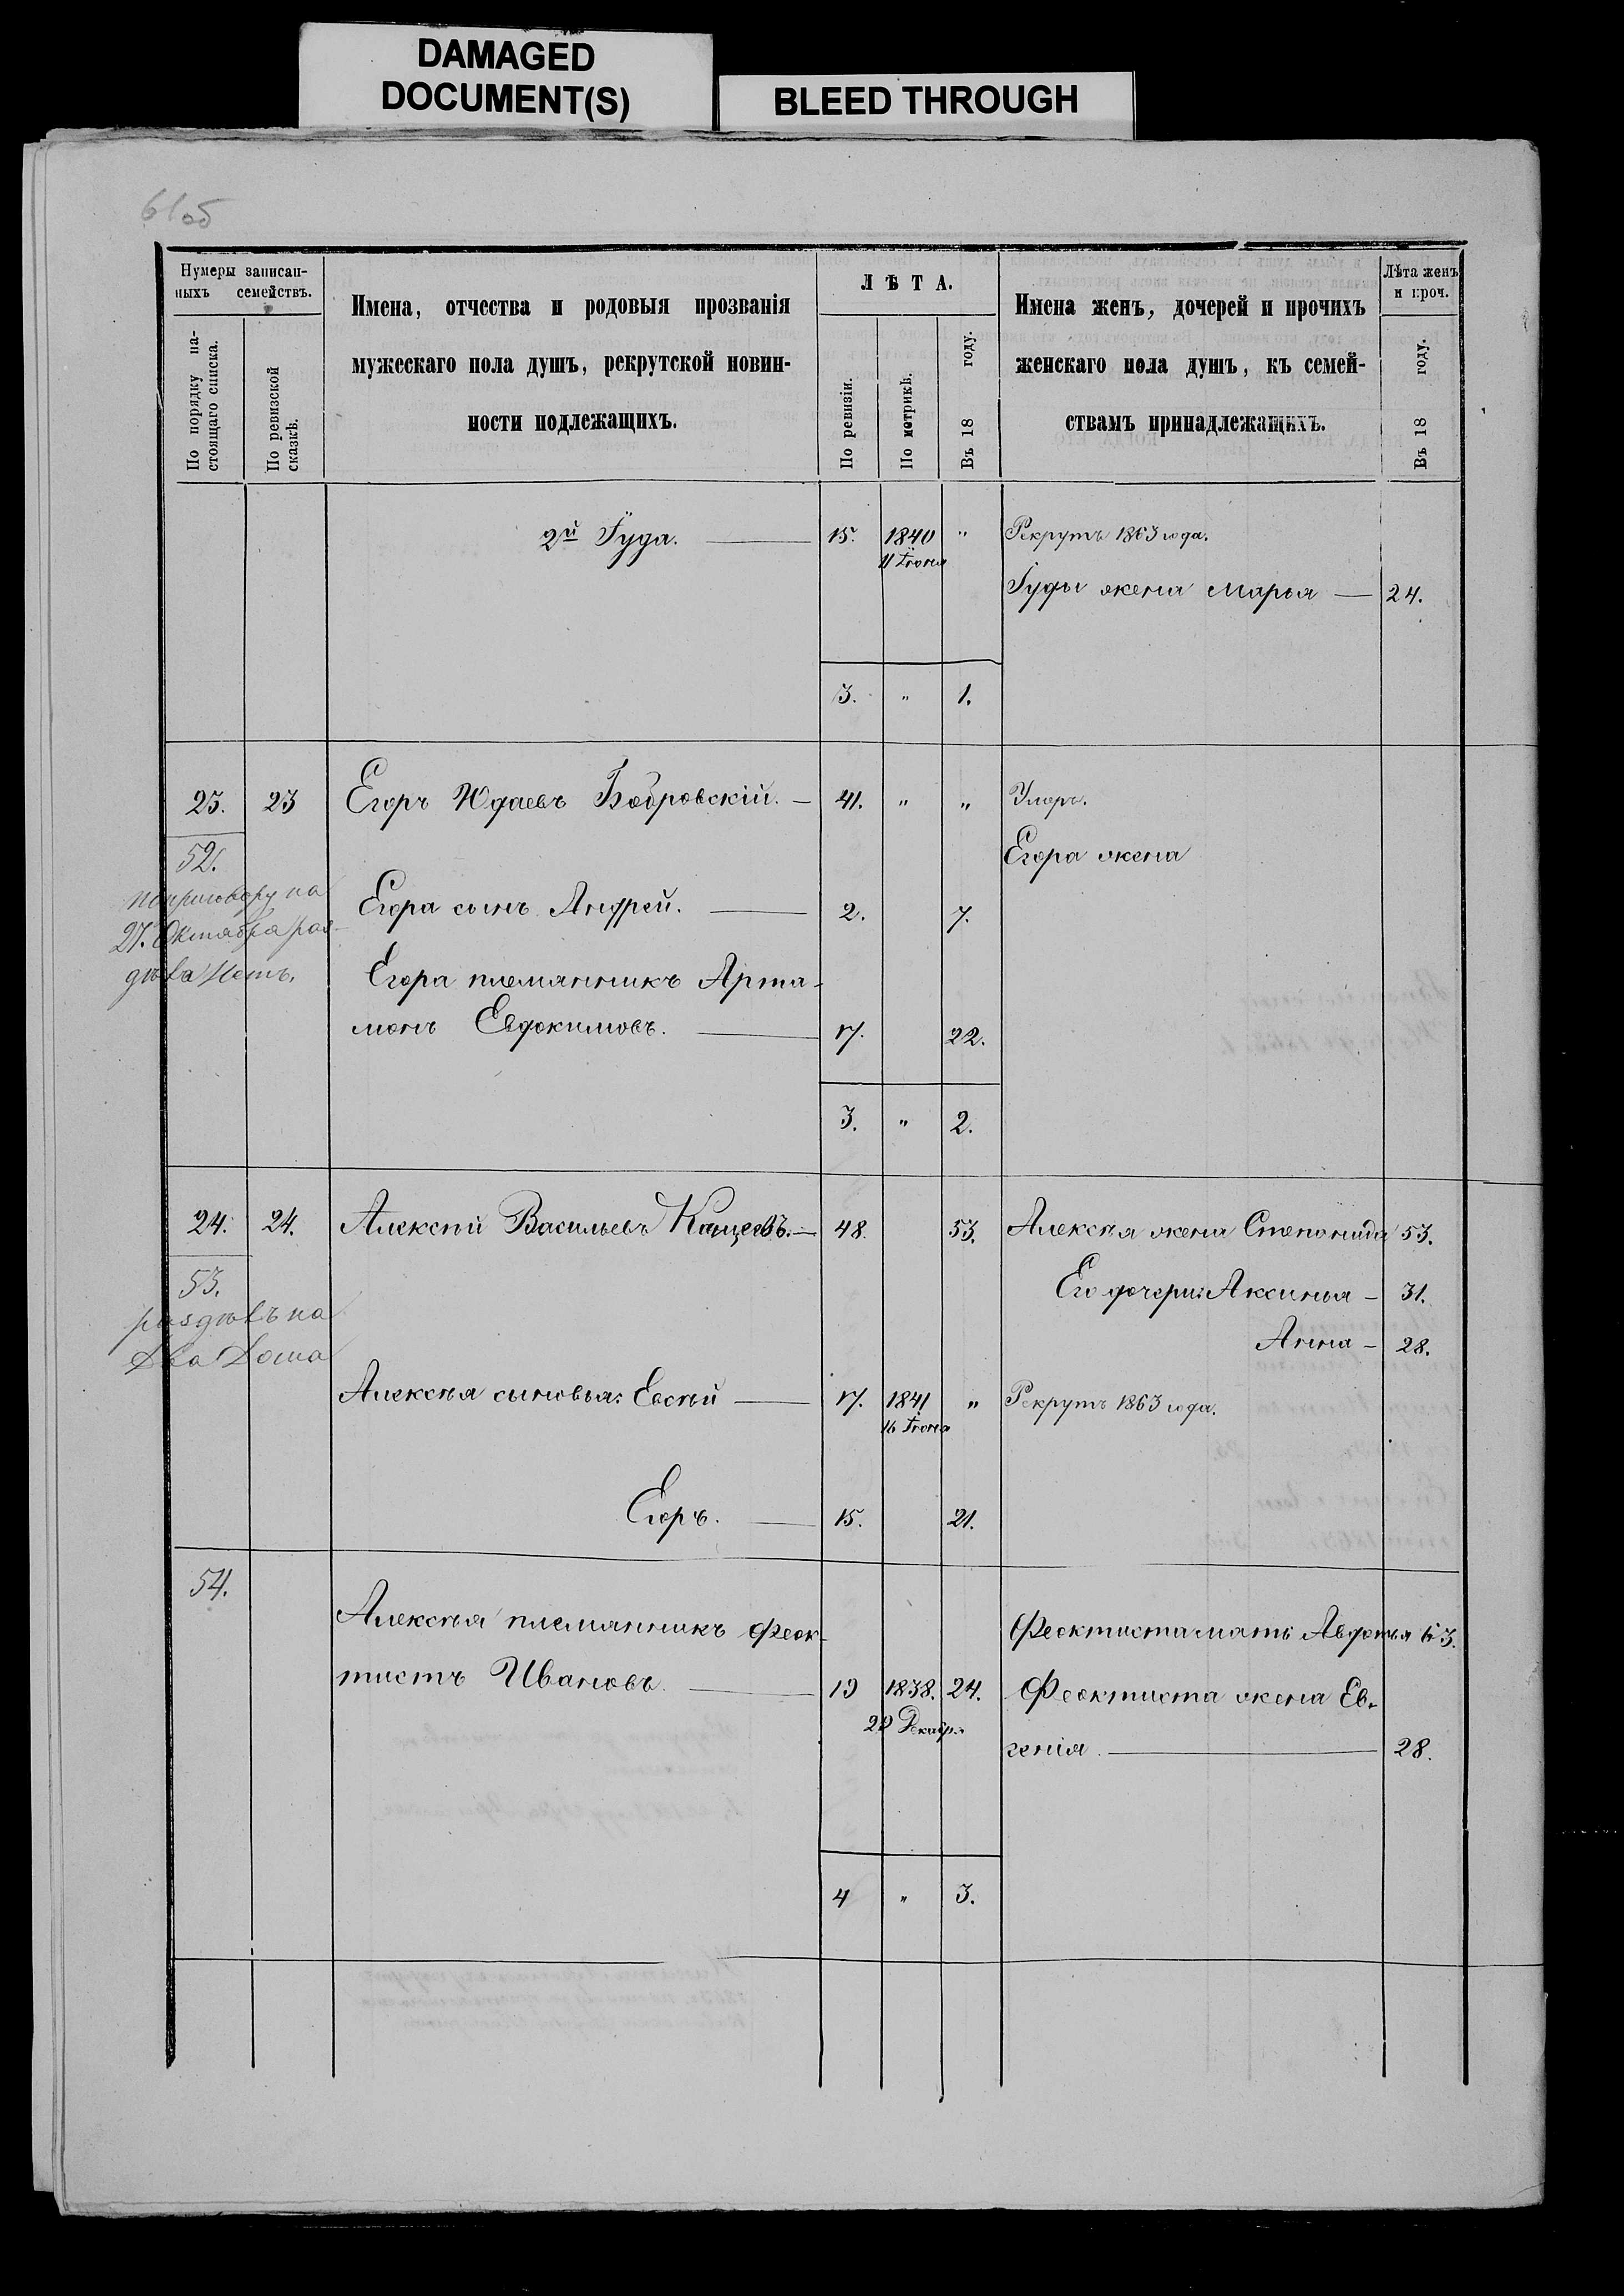 DAMAGED
DOCUMENT(S)
BLEED THROUGH
61об
Нумеры записан-
ныхъ семействъ.
По порядку на-
стоящаго списка.
По ревизской
сказкѣ.
Имена, отчества и родовыя прозванія
мужескаго пола душъ, рекрутской повин-
ности подлежащихъ.
ЛѢТА.
По ревизіи.
По метрикѣ.
Въ 18 году.
Имена женъ, дочерей и прочихъ
женскаго пола душъ, къ семей-
ствамъ принадлежащихъ.
Лѣта женъ
и проч.
Въ 18 году.
2й Іуда. 15. 1840 " Рекрутъ 1863 года.
11 Іюня
Іуды жена Марья — 24.
3. " 1.
23. 23 Егоръ Юдаевъ Бобровскій. — 41. " " Умеръ.
52. Егора жена
по приговору на
27. Октября раз-
дѣла нетъ.
Егора сынъ Андрей. 2. 7.
Егора племянникъ Арта-
монъ Евдокимовъ. 17. 22.
3. " 2.
24. 24. Алексѣй Васильевъ Кащеевъ. — 48. 53. Алексѣя жена Степонида 53.
53.
раздѣлъ на
два дома
Его дочери: Аксинья — 31.
Анна — 28.
Алексѣя сыновья: Евсѣй 17. 1841 " Рекрутъ 1863 года.
16 Іюня
Егоръ. 15. 21.
54.
Алексѣя племянникъ Феок-
тистъ Ивановъ. 19 1838. 24.
20 Декабр.
Феоктиста мать Авдотья 63.
Феоктиста жена Ев-
генія. 28.
4 " 3.